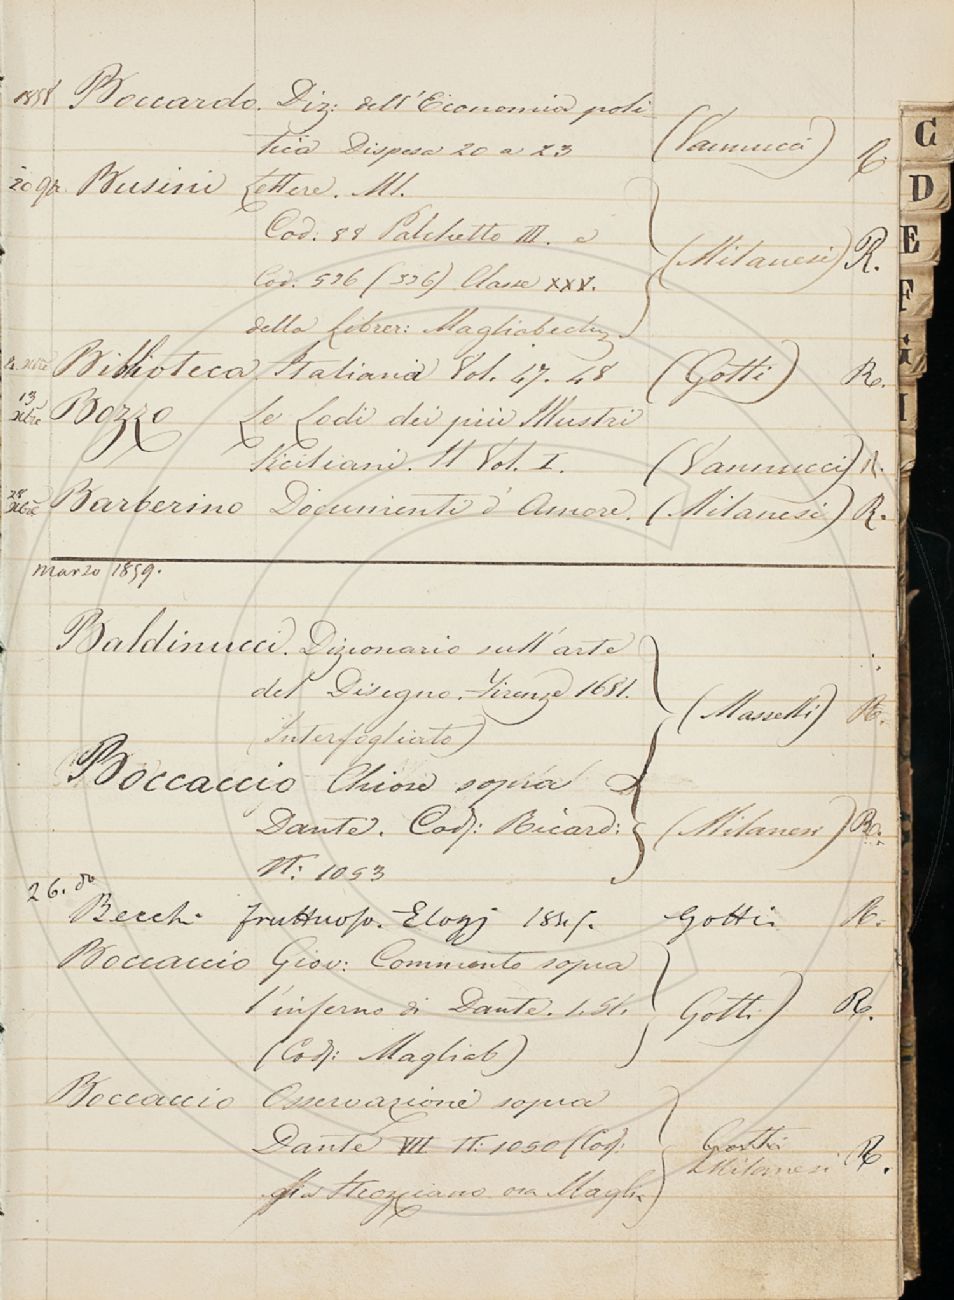 1858 Boccardo. Diz: dell'Economia poli
tica Dispesa 20 a 23 (Vannucci)
20 9br. Busini Lettere. Ml. R
Cod. 88 Palchetto III. e
Cod. 536 (336) Classe XXV. (Milanesi) R.
della Librer: Magliabechi
Biblioteca Italiana Vol. 47. 48 (Gotti) R.
13 Xbre Bozzo Le Lodi dei più Illustri
Siciliani. Vol. I. (Vannucci) R.
28 Xbre Barberino Documenti d'Amore. (Milanesi) R.
Marzo 1859.
Baldinucci. Dizionario sull'arte
del Disegno. Firenze 1681. (Masselli) R.
(Interfogliato)
Boccaccio Chiose sopra
Dante. Cod: Ricard: (Milanesi) R.
N: 1053
26. do
Becchi Fruttuoso. Elogj 1845. Gotti R.
Boccaccio Giov: Commento sopra
l'inferno di Dante. Gotti) R.
(Cod: Magliab)
Boccaccio Osservazione sopra
Dante VII N: 1050 (Cod: Gotti
Milanesi R.
Strozziano ora Magli
C
D
E
F
G
I